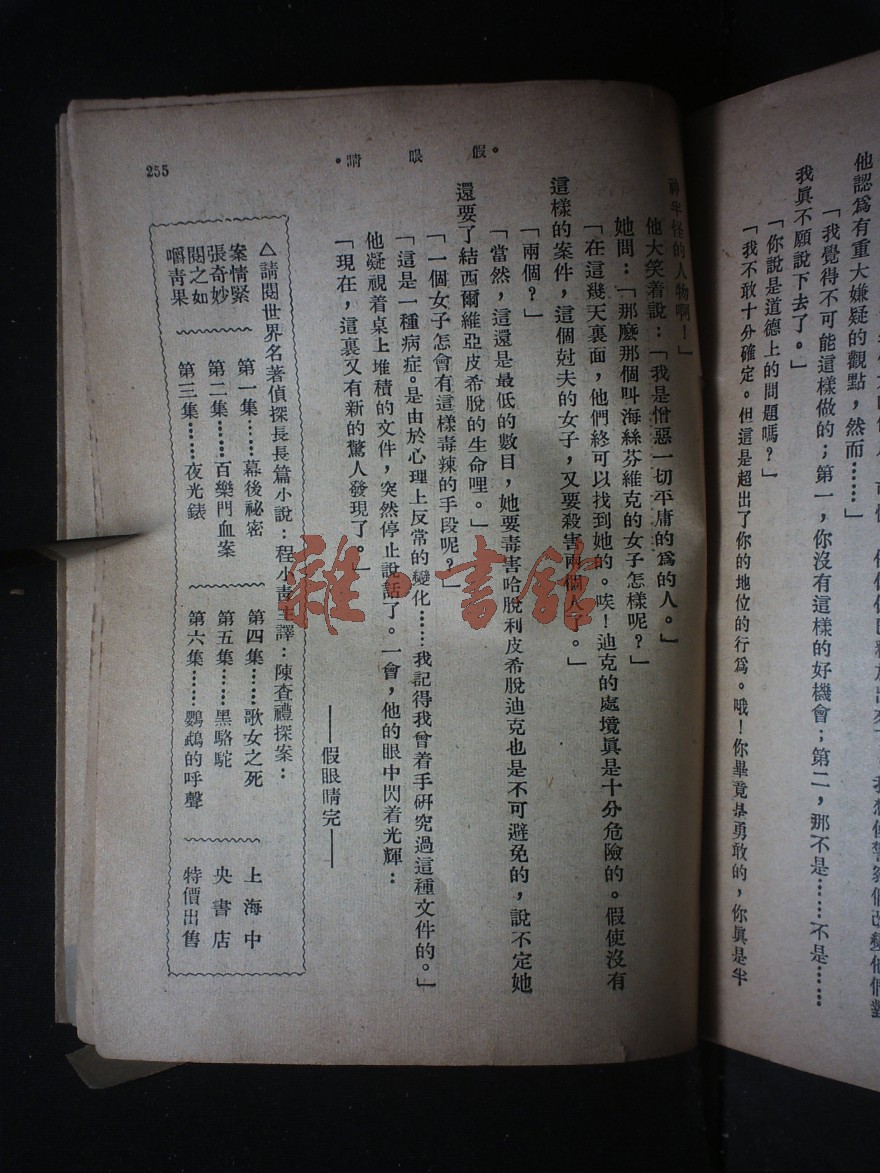 他認爲有重大嫌疑的觀點，然而……」
「我覺得不可能這樣做的；第一，你沒有這樣的好機會；第二，那不是……不是……
我眞不願說下去了。」
「你說是道德上的問題嗎？」
「我不敢十分確定。但這是超出了你的地位的行爲。哦！你畢竟是勇敢的，你眞是半
神半怪的人物啊！」
他大笑着說：「我是憎惡一切平庸的爲的人。」
她問：「那麼那個叫海絲芬維克的女子怎樣呢？」
「在這幾天裏面，他們終可以找到她的。唉！迪克的處境眞是十分危險的。假使沒有
這樣的案件，這個尅夫的女子，又要殺害兩個人了。」
「兩個？」
「當然，這還是最低的數目，她要毒害哈脫利皮希脫迪克也是不可避免的，說不定她
還要了結西爾維亞皮希脫的生命哩。」
「一個女子怎會有這樣毒辣的手段呢？」
「這是一種病症。是由於心理上反常的變化……我記得我曾着手硏究過這種文件的。」
他凝視着桌上堆積的文件，突然停止說話了。一會，他的眼中閃着光輝：
「現在，這裏又有新的驚人發現了。」
——假眼睛完——
△請閱世界名著偵探長長篇小說：程小靑主譯：陳查禮探案：
案情緊
張奇妙
閱之如
嚼靑果
第一集……幕後祕密
第二集……百樂門血案
第三集……夜光錶
第四集……歌女之死
第五集……黑駱駝
第六集……鸚鵡的呼聲
上海中
央書店
特價出售
。假眼睛。
255
雜·書館